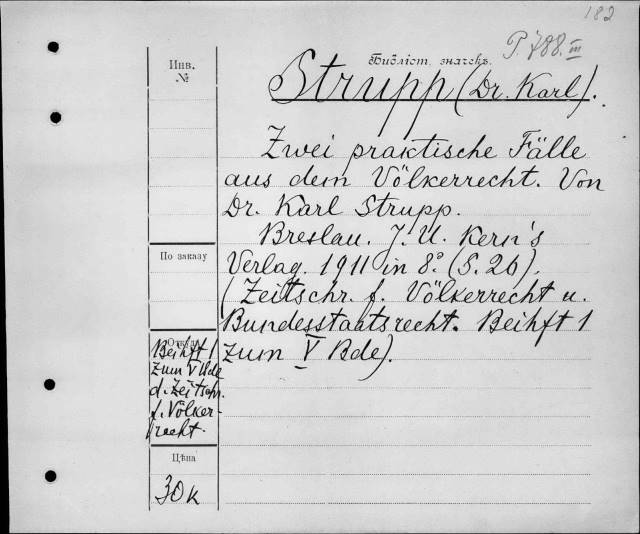 182
P. 788. III
Инв.
№
Библіот. значекъ.
Strupp (Dr. Karl).
Zwei praktische Fälle
aus dem Völkerrecht. Von
Dr. Karl Strupp.
Breslau. J. U. Kern's
Verlag. 1911 in 8° (S. 26).
(Zeitschr. f. Völkerrecht u.
Bundesstaatsrecht. Beihft 1
zum V Bde).
По заказу
Откуда
Beihft 1
zum V Bde
d. Zeitschr.
f. Völker-
recht.
Цѣна
30 к